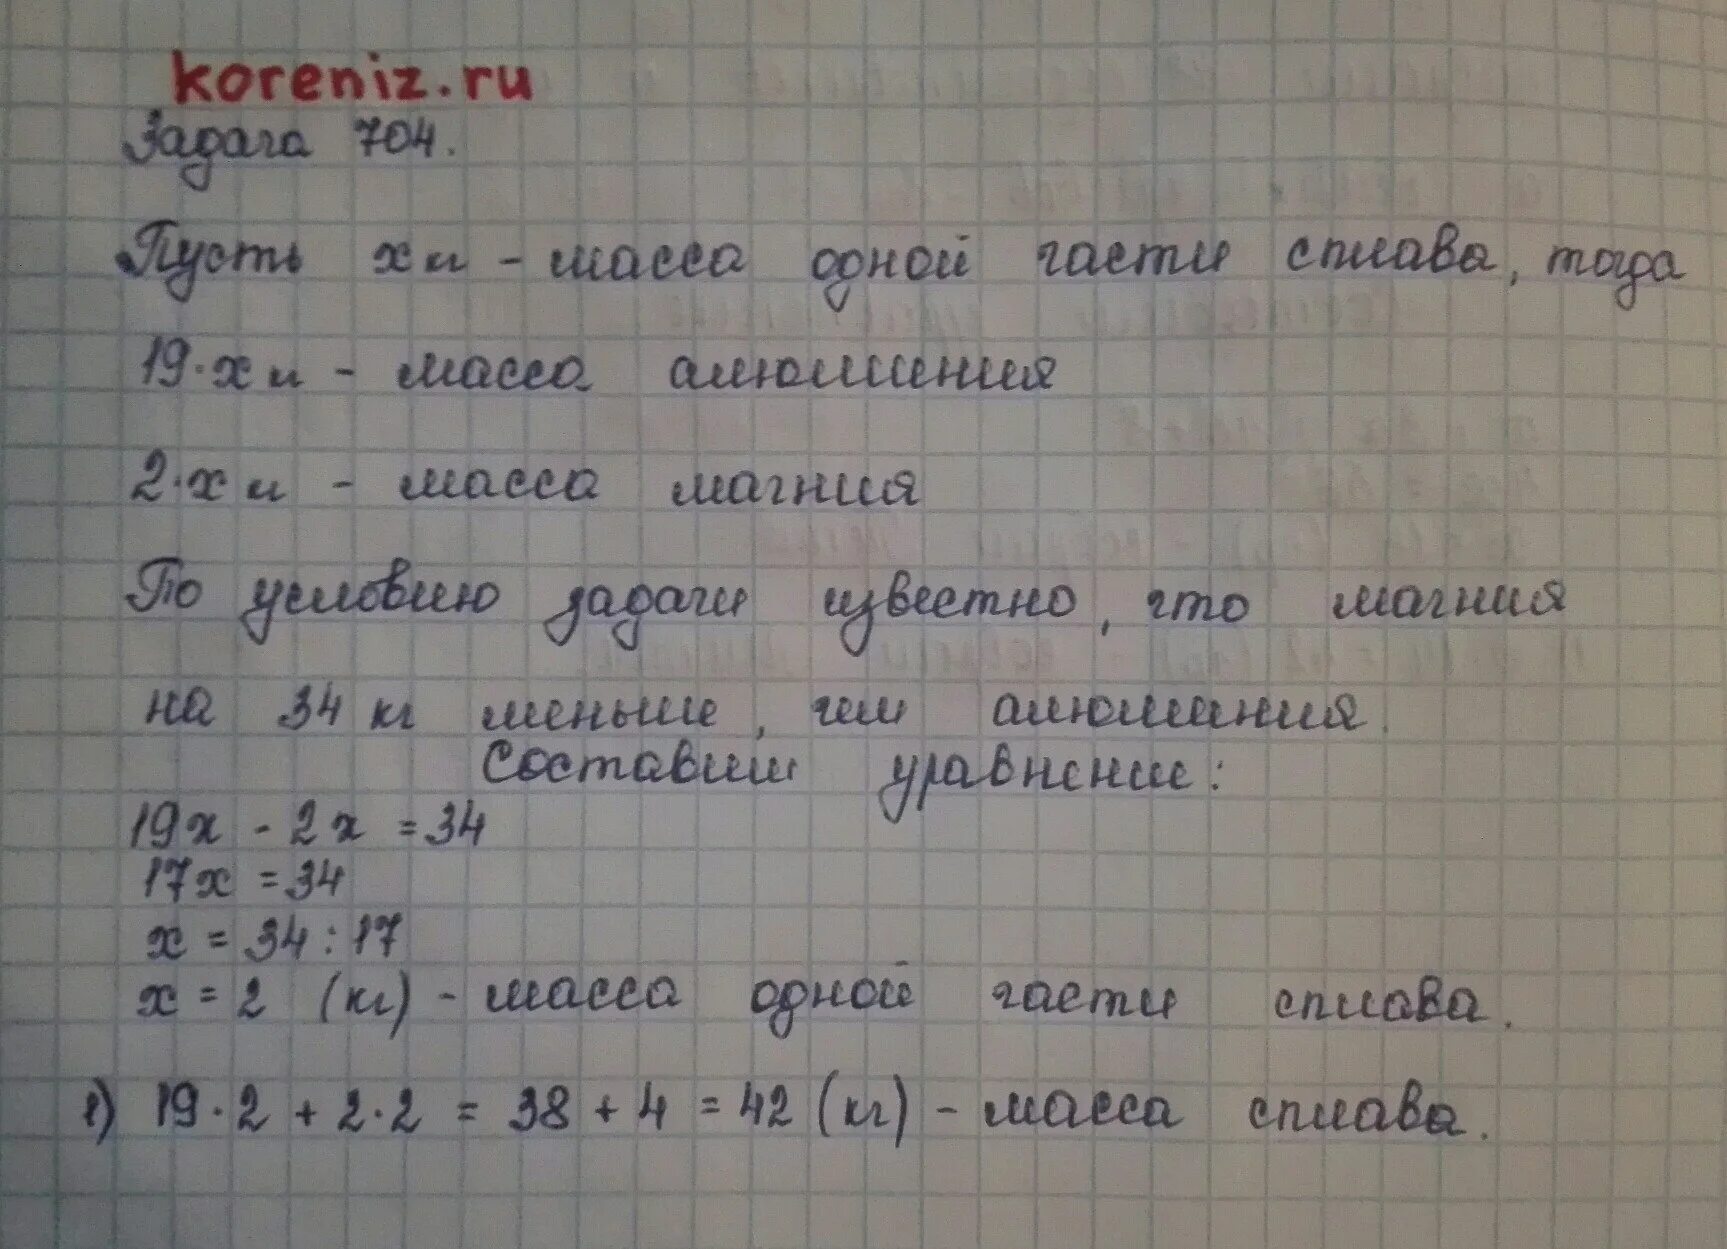 koreniz.ru
Задача 704.
Пусть х м - масса одной части сплава, тогда
19·х м - масса алюминия
2·х м - масса магния
По условию задачи известно, что магния
на 34 кг меньше, чем алюминия.
Составим уравнение:
19х - 2х = 34
17х = 34
х = 34 : 17
х = 2 (кг) - масса одной части сплава.
1) 19·2 + 2·2 = 38 + 4 = 42 (кг) - масса сплава.